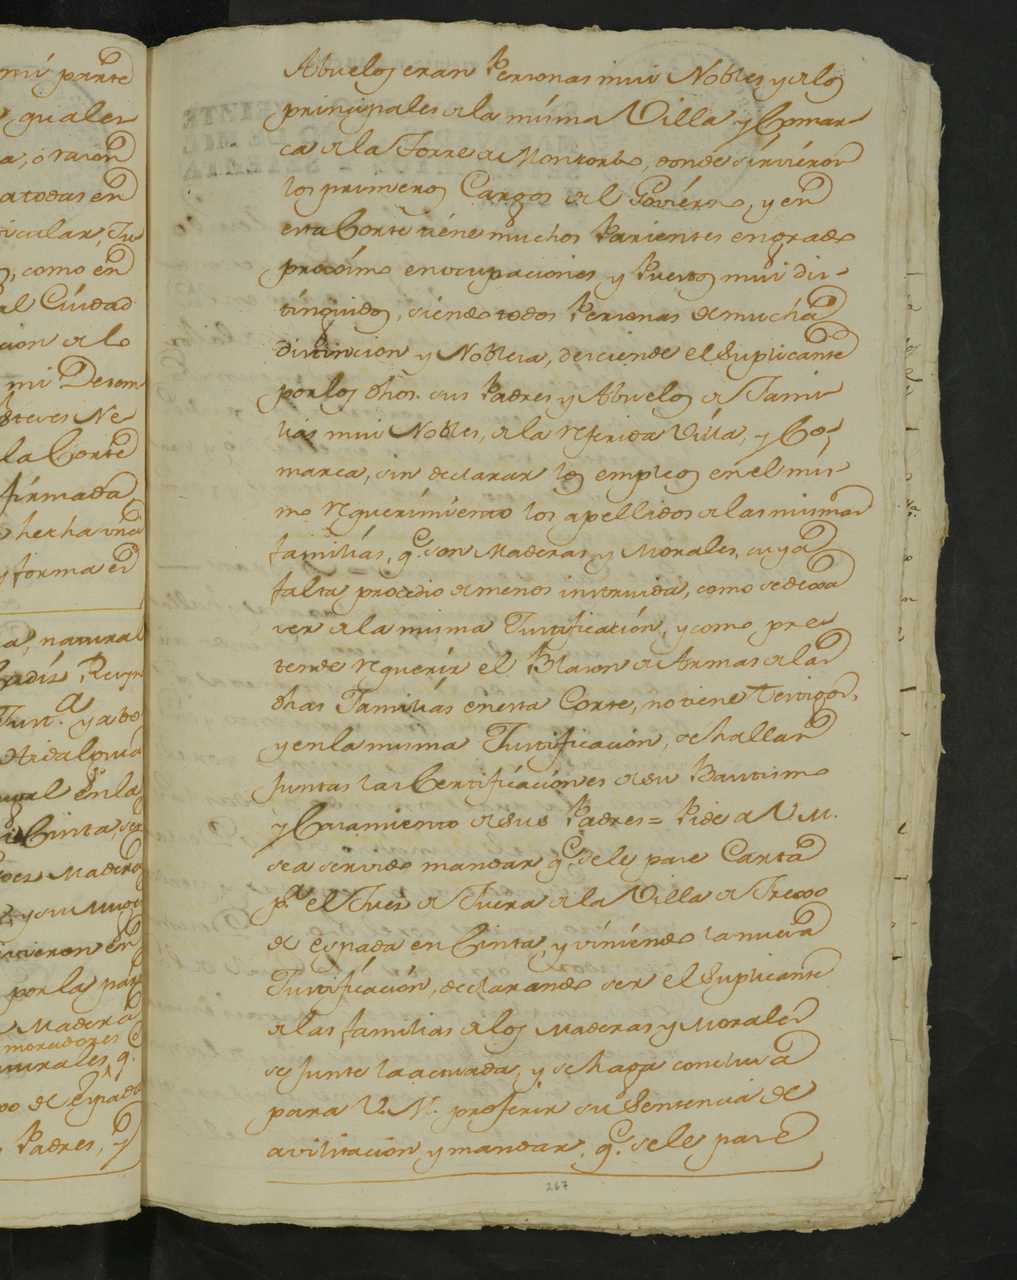 mi parte
quales
a, ó razon
a todas en
ticular, Ju
como en
al Ciudad
cion de lo
mi Desem
la Corte
firmada
hecha una
y forma en
a, natural
Just.ª y abo
Hidalguia
gual en la
Cinta, ser
Madera
y su Muger
vivieron en
por la par
Madera
moradores
naturales, q.
xo de Espada
Padres, y
Abuelos eran Personas mui Nobles y de los
principales de la misma Villa y Comar-
ca de la Torre de Montorbo, donde sirvieron
los primeros Cargos del Govierno, y en
esta Corte tiene muchos Parientes en grado
procsimo en ocupaciones y Puestos mui dis-
tinguidos, siendo todos Personas de mucha
distincion y Nobleza, desciende el Suplicante
por los dhos. sus Padres y Abuelos de Fami-
lias mui Nobles, de la referida Villa, y Co-
marca, sin declarar los empleos en el mis-
mo requerimiento los apellidos de las mismas
familias, q.e son Maderas y Morales, cuya
falta procedio de menos instruida, como se dexa
ver de la misma Justificación, y como pre-
tende requerir el Blason de Armas de las
dhas Familias en esta Corte, no tiene Testigos,
y en la misma Justificacion, se hallan
Juntas las Certificaciones de su Bautismo
y Casamiento de sus Padres = Pide a V. M.
sea servido mandar q.e se le pase Carta
p.a el Jues de Fuera de la Villa de Frexo
de Espada en Cinta, y viniendo la nueva
Justificación, declarando ser el Suplicante
de las familias de los Maderas y Morales
se Junte la actuada, y se haga conclusa
para V. M. proferir su Sentencia de
avilitacion y mandar. q.e se le pase
267